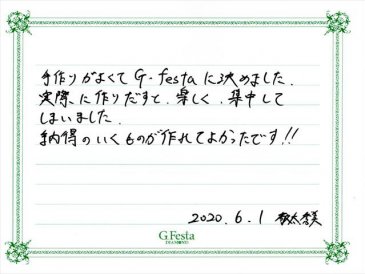 手作りがよくて G・festaに決めました.
実際に作りだすと、楽しく、集中して
しまいました.
納得のいくものが作れてよかったです!!
2020.6.1
G.Festa
DIAMOND